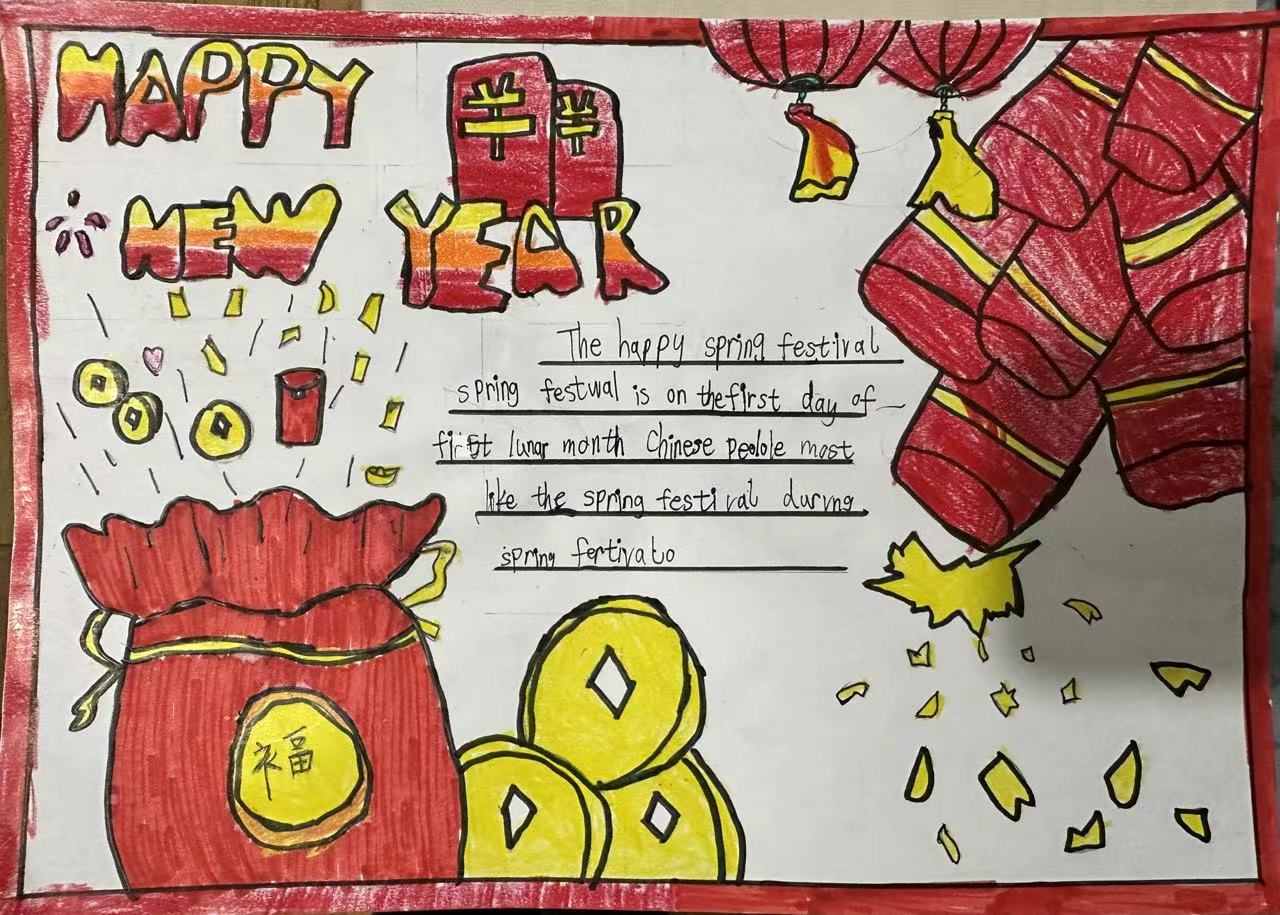 HAPPY
NEW YEAR
The happy spring festival
spring festival is on the first day of
first lunar month Chinese peolole most
like the spring festival during
spring fertivato
福